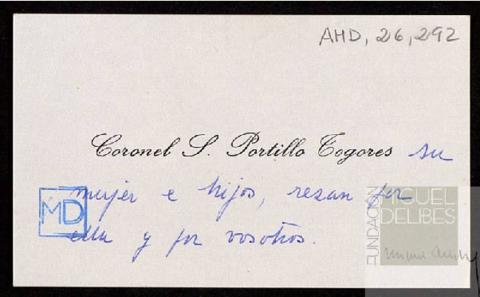 AMD, 26, 292
Coronel S. Portillo Togores su
mujer e hijos, rezan por
ella y por vosotros.
MD
FUNDACIÓN
MIGUEL
DELIBES